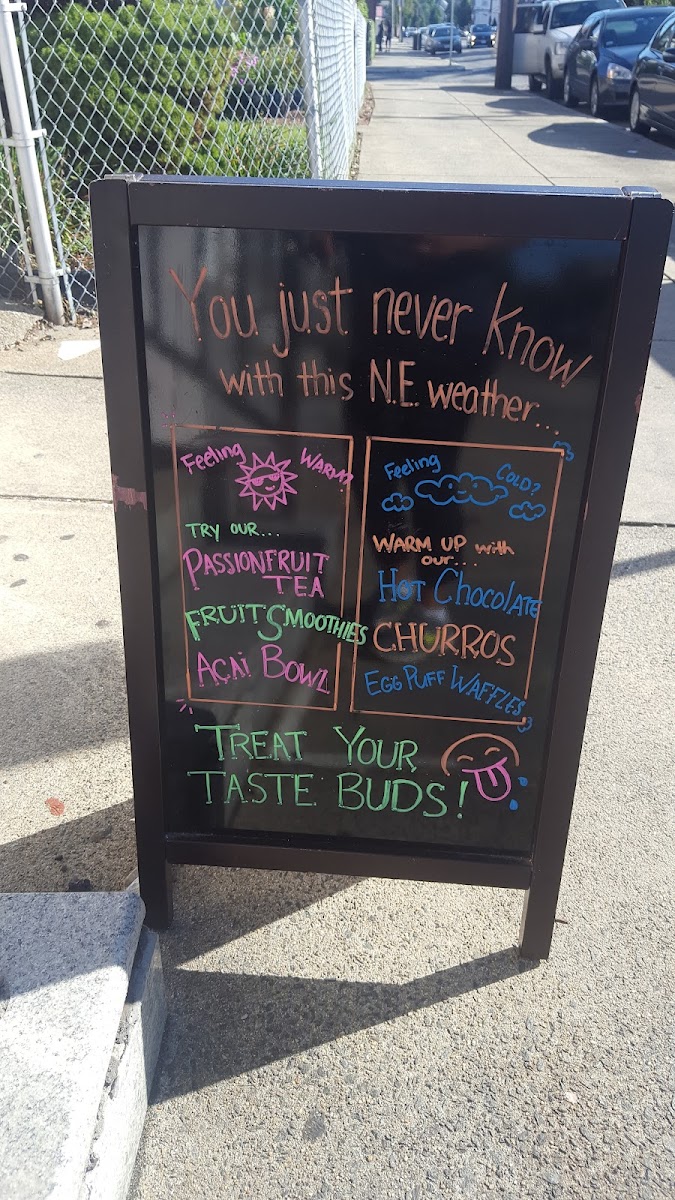 You just never know
with this N.E. weather...
Feeling WARM?
TRY OUR...
PASSIONFRUIT
TEA
FRUIT SMOOTHIES
AÇAI BOWL
Feeling COLD?
WARM UP with
our...
HOT CHOCOLATE
CHURROS
EGG PUFF WAFFLES
TREAT YOUR
TASTE BUDS!